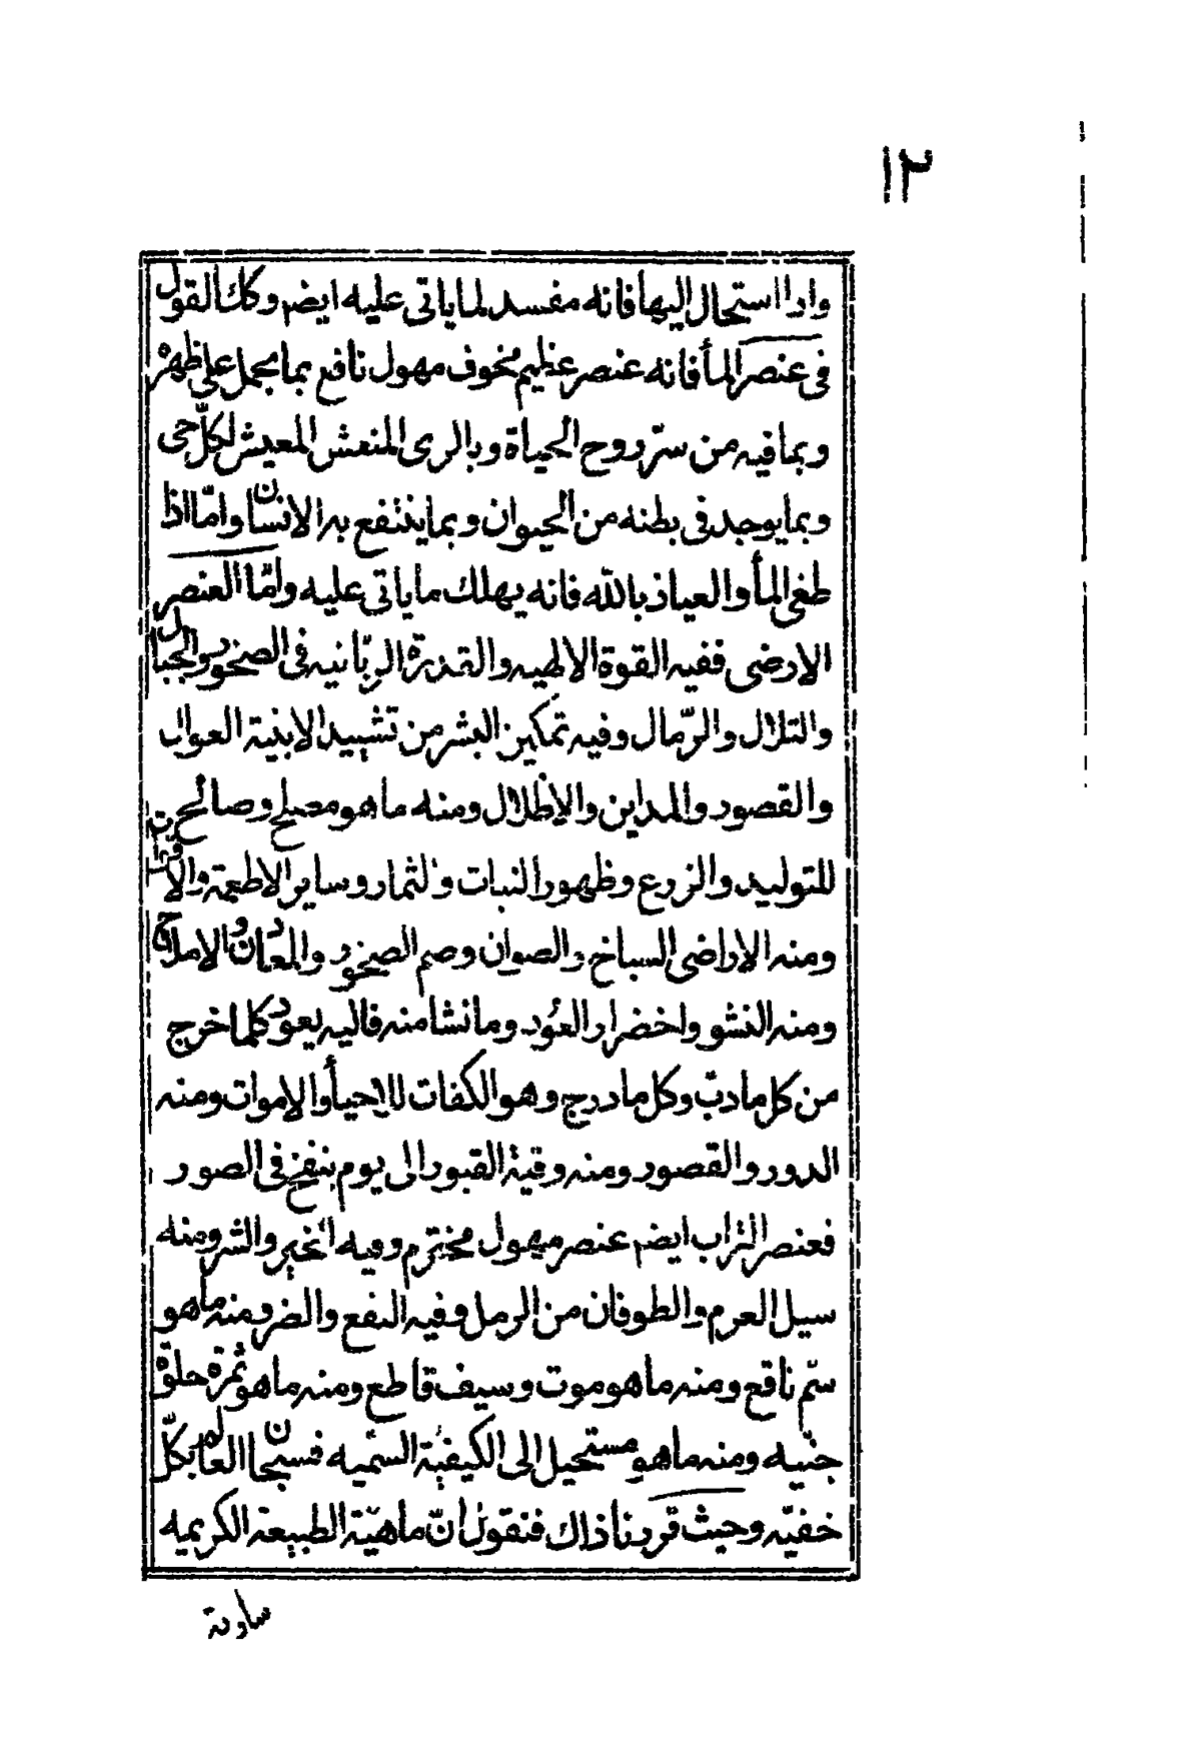 ١٢
واذا استحال اليها فانه مفسد لما ياتى عليه ايضم وكك القول
فى عنصر المأ فانه عنصر عظيم مخوف مهول نافع بما يحمل على ظهره
وبما فيه من سرّ روح الحياة وبالرى المنعش المعيش لكلّ حى
وبما يوجد فى بطنه من الحيوان وبما ينتفع به الانسان وامّا اذا
طغى المأ والعياذ بالله فانه يهلك ما ياتى عليه وامّا العنصر
الارضى ففيه القوة الالهيه والقدرة الربّانيه فى الصخور والجبال
والتلال والرّمال وفيه تمكين البشر من تشييد الابنية العوال
والقصور والمداين والاطلال ومنه ما هو مصلح وصالح
للتوليد والزرع وظهور النبات والثمار وساير الاطعمة والاقوات
ومنه الاراضى السباخ والصوان وصم الصخور والمعادن والاملاح
ومنه النشو واخضرار العود وما نشا منه فاليه يعود كلما خرج
من كل ما دبّ وكل ما درج وهو الكفات للاحيأ والاموات ومنه
الدور والقصور ومنه وقية القبور الى يوم ينفخ فى الصور
فعنصر التراب ايضم عنصر مهول محترم وفيه الخير والشر ومنه
سيل العرم والطوفان من الرمل وفيه النفع والضر ومنه ما هو
سمّ ناقع ومنه ما هو موت وسيف قاطع ومنه ما هو ثمرة حلوة
جنّيه ومنه ما هو مستحيل الى الكيفيّة السمّيه فسبحان العالم بكلّ
خفيّه وحيث قررنا ذاك فنقول انّ ماهيّة الطبيعة الكريميه